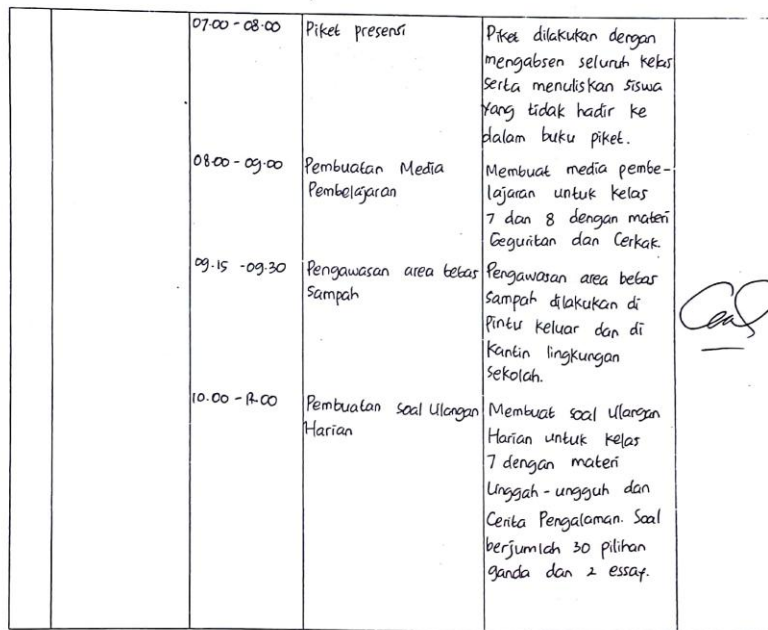 07.00 - 08.00
Piket presensi
Piket dilakukan dengan
mengabsen seluruh kelas
serta menuliskan siswa
yang tidak hadir ke
dalam buku piket.
08.00 - 09.00
Pembuatan Media
Pembelajaran
Membuat media pembe-
lajaran untuk kelas
7 dan 8 dengan materi
Geguritan dan Cerkak.
09.15 - 09.30
Pengawasan area bebas
Sampah
Pengawasan area bebas
Sampah dilakukan di
Pintu keluar dan di
Kantin lingkungan
sekolah.
10.00 -
Pembuatan Soal Ulangan
Harian
Membuat soal Ulangan
Harian untuk kelas
7 dengan materi
Unggah-ungguh dan
Cerita Pengalaman. Soal
berjumlah 30 pilihan
ganda dan 2 essay.